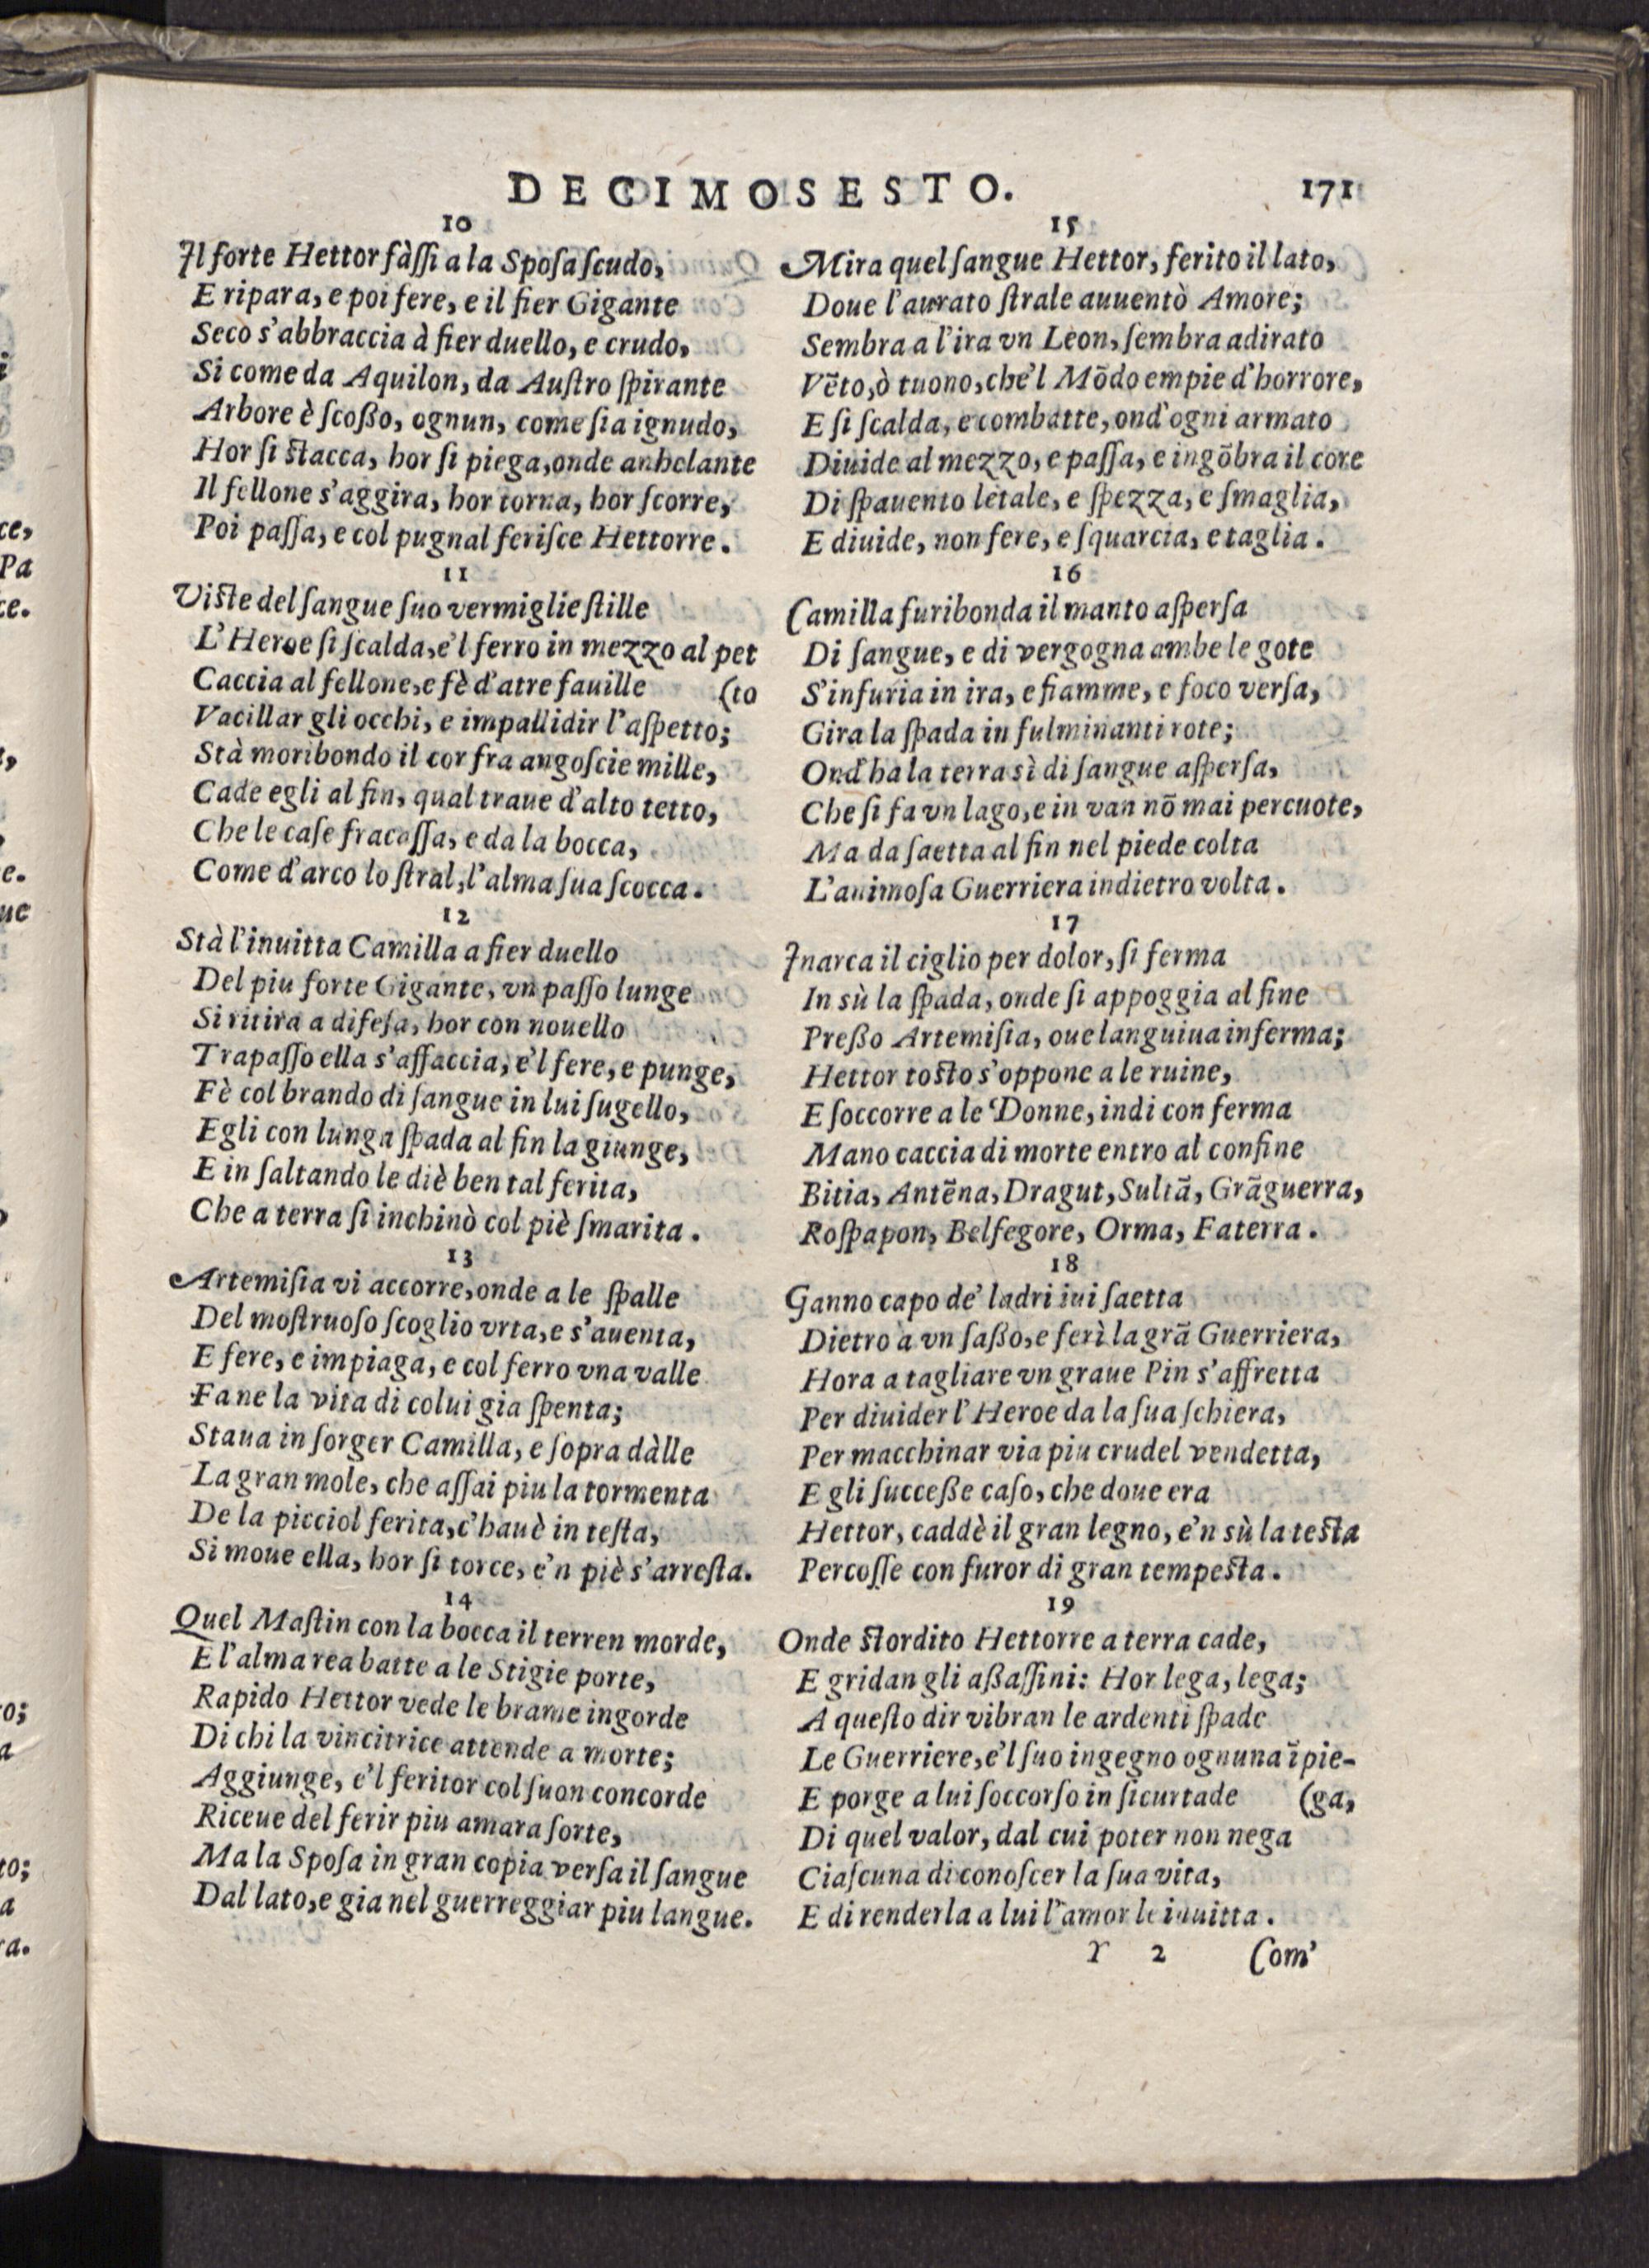 DECIMOSESTO. 171
10
Il forte Hettor fàſſi a la Spoſa ſcudo,
E ripara, e poi fere, e il fier Gigante
Seco s'abbraccia à fier duello, e crudo,
Si come da Aquilon, da Auſtro ſpirante
Arbore è ſcoßo, ognun, come ſia ignudo,
Hor ſi ſtacca, hor ſi piega, onde anhelante
Il fellone s'aggira, hor torna, hor ſcorre,
Poi paſſa, e col pugnal feriſce Hettorre.
11
Viſte del ſangue ſuo vermiglie ſtille
L'Heroe ſi ſcalda, e'l ferro in mezzo al pet
Caccia al fellone, e fè d'atre fauille (to
Vacillar gli occhi, e impallidir l'aſpetto;
Stà moribondo il cor fra angoſcie mille,
Cade egli al fin, qual traue d'alto tetto,
Che le caſe fracaſſa, e da la bocca,
Come d'arco lo ſtral, l'alma ſua ſcocca.
12
Stà l'inuitta Camilla a fier duello
Del piu forte Gigante, vn paſſo lunge
Si ritira a difeſa, hor con nouello
Trapaſſo ella s'affaccia, e'l fere, e punge,
Fè col brando di ſangue in lui ſugello,
Egli con lunga ſpada al fin la giunge,
E in ſaltando le diè ben tal ferita,
Che a terra ſi inchinò col piè ſmarita.
13
Artemiſia vi accorre, onde a le ſpalle
Del moſtruoſo ſcoglio vrta, e s'auenta,
E fere, e impiaga, e col ferro vna valle
Fa ne la vita di colui gia ſpenta;
Staua in ſorger Camilla, e ſopra dàlle
La gran mole, che aſſai piu la tormenta
De la picciol ferita, c'hauè in teſta,
Si moue ella, hor ſi torce, e'n piè s'arreſta.
14
Quel Maſtin con la bocca il terren morde,
E l'alma rea batte a le Stigie porte,
Rapido Hettor vede le brame ingorde
Di chi la vincitrice attende a morte;
Aggiunge, e'l feritor col ſuon concorde
Riceue del ferir piu amara ſorte,
Ma la Spoſa in gran copia verſa il ſangue
Dal lato, e gia nel guerreggiar piu langue.
15
Mira quel ſangue Hettor, ferito il lato,
Doue l'aurato ſtrale auuentò Amore;
Sembra a l'ira vn Leon, ſembra adirato
Vẽto, ò tuono, che'l Mõdo empie d'horrore,
E ſi ſcalda, e combatte, ond'ogni armato
Diuide al mezzo, e paſſa, e ingõbra il core
Di ſpauento letale, e ſpezza, e ſmaglia,
E diuide, non fere, e ſquarcia, e taglia.
16
Camilla furibonda il manto aſperſa
Di ſangue, e di vergogna ambe le gote
S'infuria in ira, e fiamme, e foco verſa,
Gira la ſpada in fulminanti rote;
Ond'ha la terra sì di ſangue aſperſa,
Che ſi fa vn lago, e in van nõ mai percuote,
Ma da ſaetta al fin nel piede colta
L'animoſa Guerriera indietro volta.
17
Inarca il ciglio per dolor, ſi ferma
In sù la ſpada, onde ſi appoggia al fine
Preßo Artemiſia, oue languiua inferma;
Hettor toſto s'oppone a le ruine,
E ſoccorre a le Donne, indi con ferma
Mano caccia di morte entro al confine
Bitia, Antẽna, Dragut, Sultã, Grãguerra,
Roſpapon, Belfegore, Orma, Faterra.
18
Ganno capo de' ladri iui ſaetta
Dietro à vn ſaßo, e ferì la grã Guerriera,
Hora a tagliare vn graue Pin s'affretta
Per diuider l'Heroe da la ſua ſchiera,
Per macchinar via piu crudel vendetta,
E gli ſucceße caſo, che doue era
Hettor, caddè il gran legno, e'n sù la teſta
Percoſſe con furor di gran tempeſta.
19
Onde ſtordito Hettorre a terra cade,
E gridan gli aßaſſini: Hor lega, lega;
A queſto dir vibran le ardenti ſpade
Le Guerriere, e'l ſuo ingegno ognuna ĩpie-
E porge a lui ſoccorſo in ſicurtade (ga,
Di quel valor, dal cui poter non nega
Ciaſcuna di conoſcer la ſua vita,
E di renderla a lui l'amor le inuitta.
Y 2 Com'